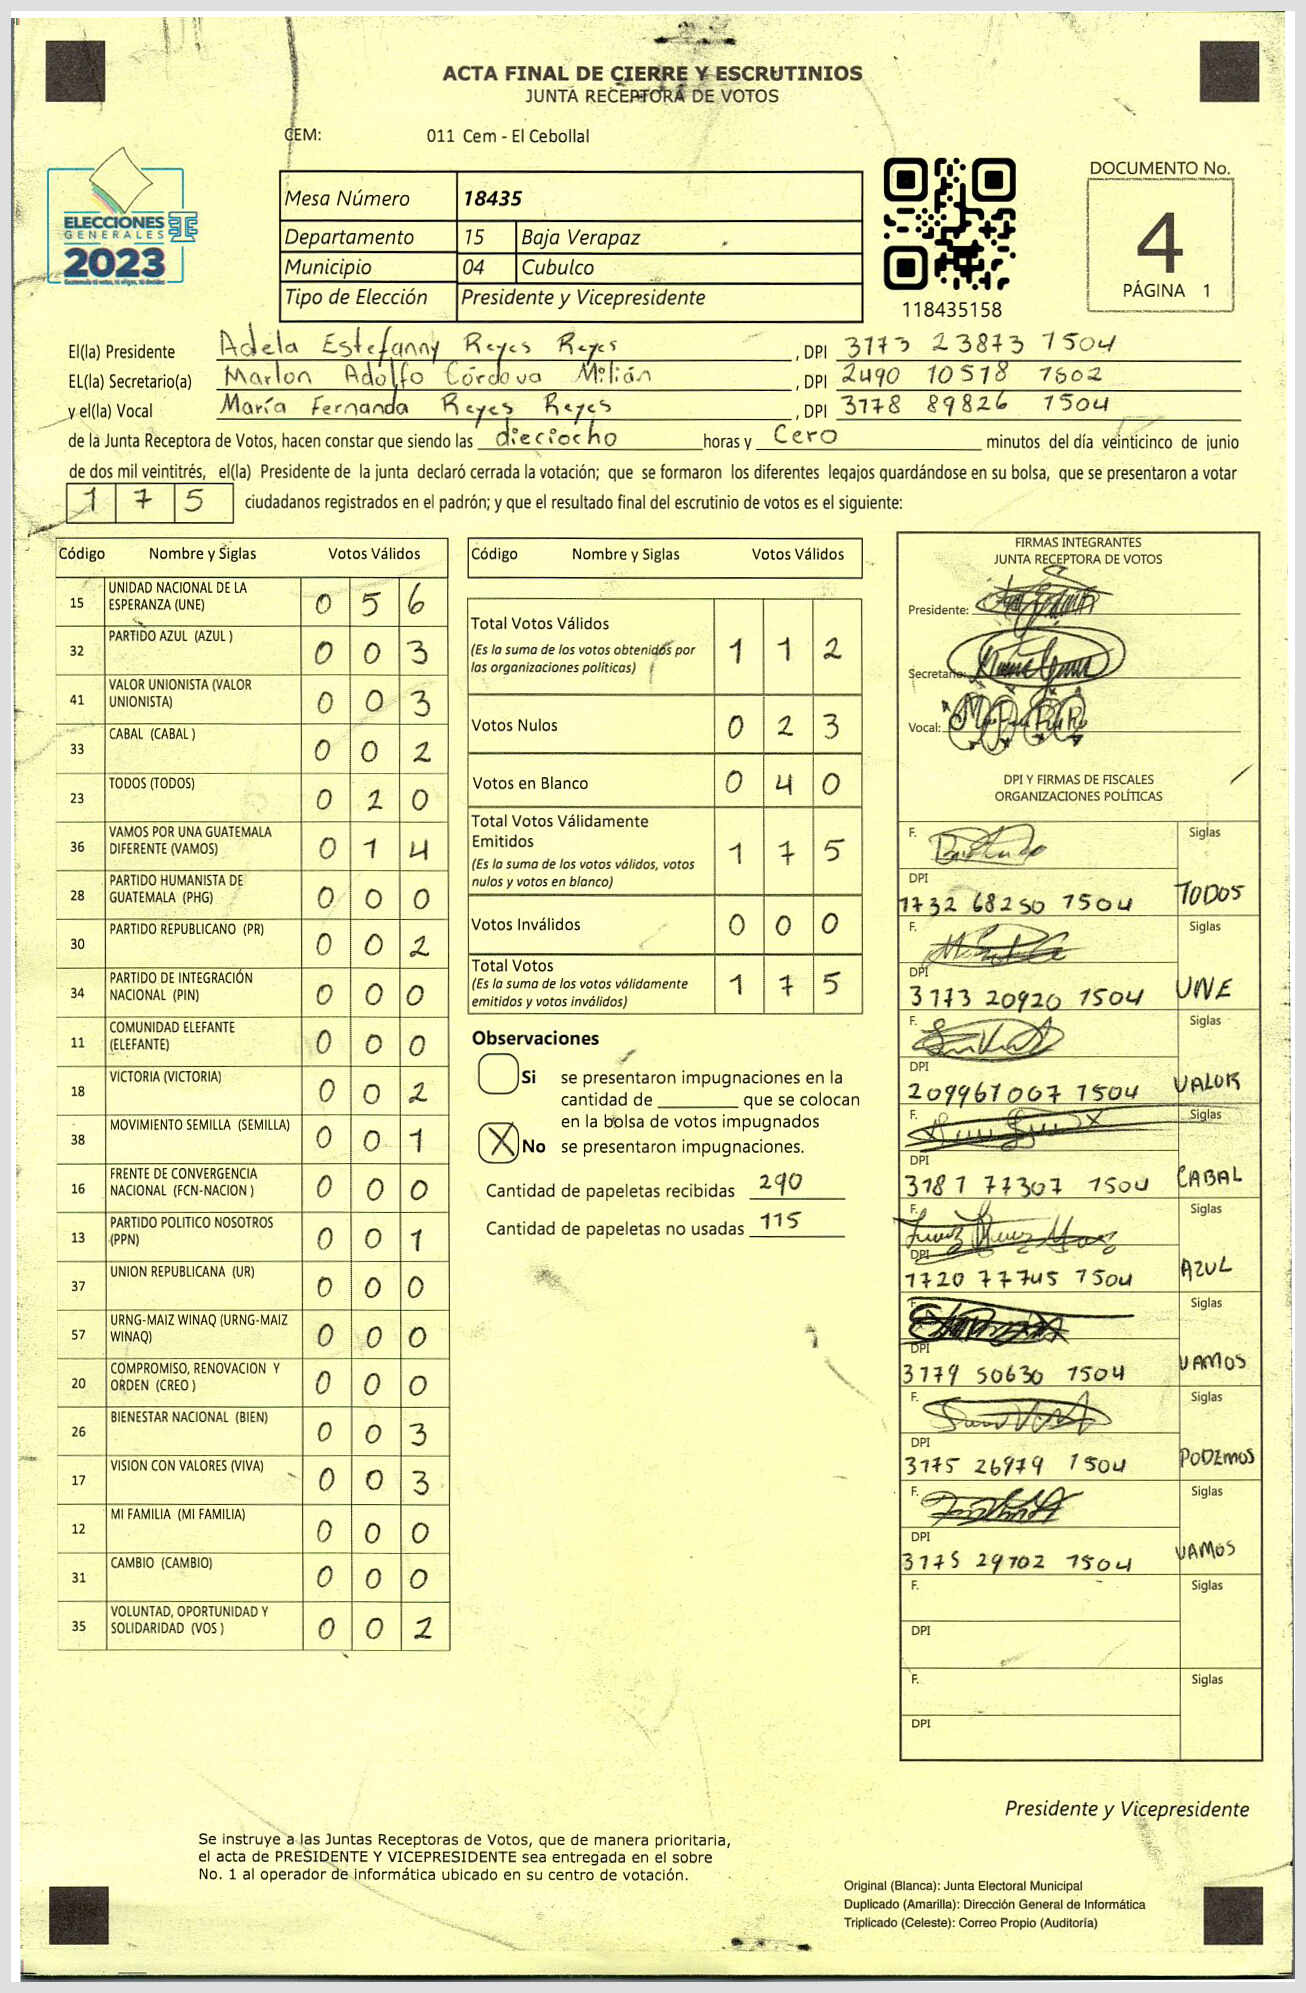 ACTA FINAL DE CIERRE Y ESCRUTINIOS
JUNTA RECEPTORA DE VOTOS
CEM: 011 Cem - El Cebollal
ELECCIONES
GENERALES
2023
Mesa Número 18435
Departamento 15 Baja Verapaz
Municipio 04 Cubulco
Tipo de Elección Presidente y Vicepresidente
118435158
DOCUMENTO No.
4
PÁGINA 1
El(la) Presidente Adela Estefanny Reyes Reyes , DPI 3173 23873 1504
EL(la) Secretario(a) Marlon Adolfo Córdova Milián , DPI 2490 10518 1502
y el(la) Vocal María Fernanda Reyes Reyes , DPI 3178 89826 1504
de la Junta Receptora de Votos, hacen constar que siendo las dieciocho horas y Cero minutos del día veinticinco de junio
de dos mil veintitrés, el(la) Presidente de la junta declaró cerrada la votación; que se formaron los diferentes legajos quardándose en su bolsa, que se presentaron a votar
175 ciudadanos registrados en el padrón; y que el resultado final del escrutinio de votos es el siguiente:
Código Nombre y Siglas Votos Válidos
15 UNIDAD NACIONAL DE LA ESPERANZA (UNE) 0 5 6
32 PARTIDO AZUL (AZUL ) 0 0 3
41 VALOR UNIONISTA (VALOR UNIONISTA) 0 0 3
33 CABAL (CABAL ) 0 0 2
23 TODOS (TODOS) 0 2 0
36 VAMOS POR UNA GUATEMALA DIFERENTE (VAMOS) 0 1 4
28 PARTIDO HUMANISTA DE GUATEMALA (PHG) 0 0 0
30 PARTIDO REPUBLICANO (PR) 0 0 2
34 PARTIDO DE INTEGRACIÓN NACIONAL (PIN) 0 0 0
11 COMUNIDAD ELEFANTE (ELEFANTE) 0 0 0
18 VICTORIA (VICTORIA) 0 0 2
38 MOVIMIENTO SEMILLA (SEMILLA) 0 0 1
16 FRENTE DE CONVERGENCIA NACIONAL (FCN-NACION ) 0 0 0
13 PARTIDO POLITICO NOSOTROS (PPN) 0 0 1
37 UNION REPUBLICANA (UR) 0 0 0
57 URNG-MAIZ WINAQ (URNG-MAIZ WINAQ) 0 0 0
20 COMPROMISO, RENOVACION Y ORDEN (CREO ) 0 0 0
26 BIENESTAR NACIONAL (BIEN) 0 0 3
17 VISION CON VALORES (VIVA) 0 0 3
12 MI FAMILIA (MI FAMILIA) 0 0 0
31 CAMBIO (CAMBIO) 0 0 0
35 VOLUNTAD, OPORTUNIDAD Y SOLIDARIDAD (VOS ) 0 0 2
Código Nombre y Siglas Votos Válidos
Total Votos Válidos 1 1 2
(Es la suma de los votos obtenidos por
las organizaciones políticas)
Votos Nulos 0 2 3
Votos en Blanco 0 4 0
Total Votos Válidamente
Emitidos 1 7 5
(Es la suma de los votos válidos, votos
nulos y votos en blanco)
Votos Inválidos 0 0 0
Total Votos 1 7 5
(Es la suma de los votos válidamente
emitidos y votos inválidos)
Observaciones
Si se presentaron impugnaciones en la
cantidad de ________ que se colocan
en la bolsa de votos impugnados
X No se presentaron impugnaciones.
Cantidad de papeletas recibidas 290
Cantidad de papeletas no usadas 115
FIRMAS INTEGRANTES
JUNTA RECEPTORA DE VOTOS
Presidente:
Secretario:
Vocal:
DPI Y FIRMAS DE FISCALES
ORGANIZACIONES POLÍTICAS
F. Siglas
DPI 1732 68250 1504 TODOS
F. Siglas
DPI 3173 20920 1504 UNE
F. Siglas
DPI 209961007 1504 VALOR
F. Siglas
DPI 3181 77307 1504 CABAL
F. Siglas
DPI 1720 77745 1504 AZUL
F. Siglas
DPI 3179 50630 1504 VAMOS
F. Siglas
DPI 3175 26979 1504 PODEMOS
F. Siglas
DPI 3175 29702 1504 VAMOS
F. Siglas
DPI
F. Siglas
DPI
Presidente y Vicepresidente
Se instruye a las Juntas Receptoras de Votos, que de manera prioritaria,
el acta de PRESIDENTE Y VICEPRESIDENTE sea entregada en el sobre
No. 1 al operador de informática ubicado en su centro de votación.
Original (Blanca): Junta Electoral Municipal
Duplicado (Amarilla): Dirección General de Informática
Triplicado (Celeste): Correo Propio (Auditoría)